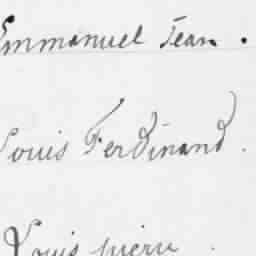 Emmanuel Jean.
Louis Ferdinand.
Louis pierre.